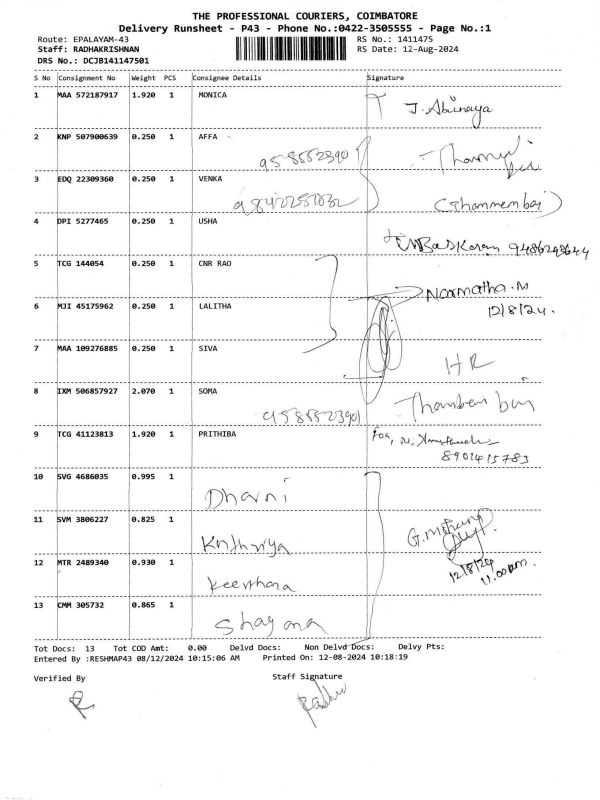 THE PROFESSIONAL COURIERS, COIMBATORE
Delivery Runsheet - P43 - Phone No.:0422-3505555 - Page No.:1
Route: EPALAYAM-43 RS No.: 1411475
Staff: RADHAKRISHNAN RS Date: 12-Aug-2024
DRS No.: DCJB141147501
S No Consignment No Weight PCS Consignee Details Signature
1 MAA 572187917 1.920 1 MONICA J. Abinaya
2 KNP 507900639 0.250 1 AFFA
9585552390
3 EDQ 22309360 0.250 1 VENKA
4 DPI 5277465 0.250 1 USHA
Baskaran 9486248644
5 TCG 144054 0.250 1 CNR RAO
Narmatha.M
6 MJI 45175962 0.250 1 LALITHA 12/8/24.
7 MAA 109276885 0.250 1 SIVA
HR
8 IXM 506857927 2.070 1 SOMA
9585552390
9 TCG 41123813 1.920 1 PRITHIBA
8901415783
10 SVG 4686035 0.995 1
Dharni
11 SVM 3806227 0.825 1
12 MTR 2489340 0.930 1
12/8/24
Keerthana 11.00am.
13 CMM 305732 0.865 1
Shagana
Tot Docs: 13 Tot COD Amt: 0.00 Delvd Docs: Non Delvd Docs: Delvy Pts:
Entered By :RESHMAP43 08/12/2024 10:15:06 AM Printed On: 12-08-2024 10:18:19
Verified By Staff Signature